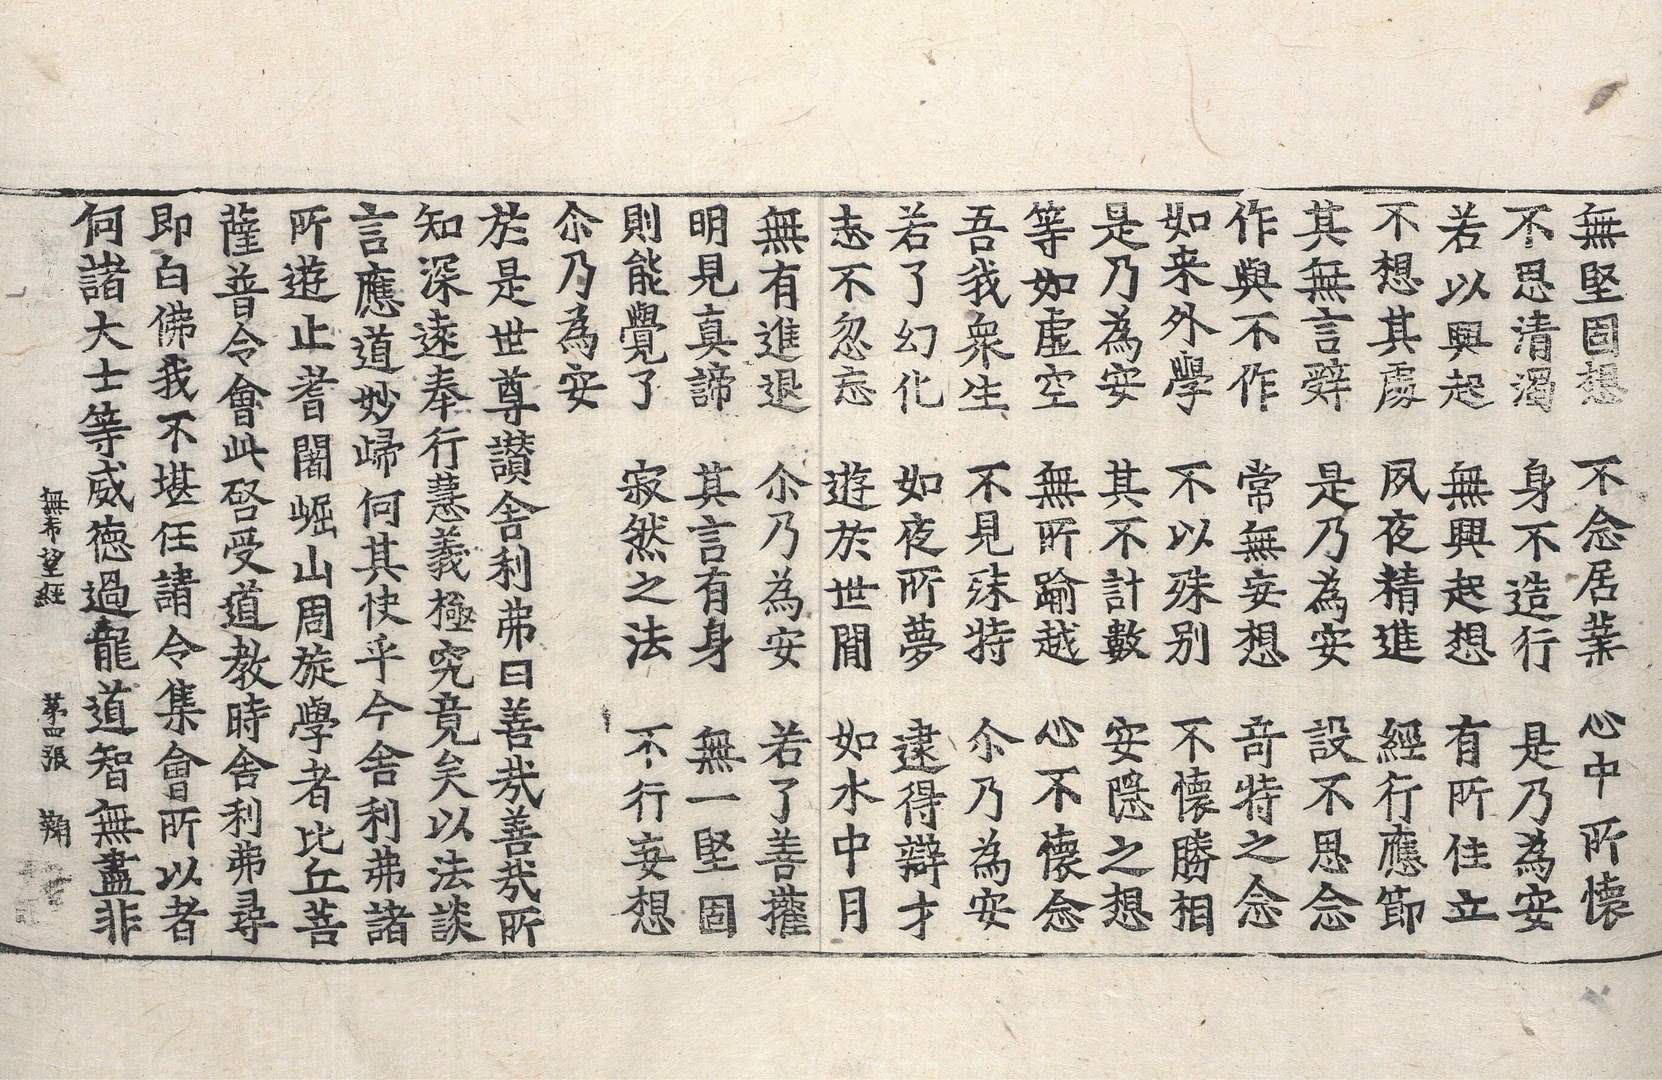 無堅固想 不念居業 心中所懷
不思清濁 身不造行 是乃為安
若以興起 無興起想 有所住立
不想其處 夙夜精進 經行應節
其無言辭 是乃為安 設不思念
作與不作 常無妄想 奇特之念
如来外學 不以殊别 不懷勝相
是乃為安 其不計數 安隱之想
等如虛空 無所踰越 心不懷念
吾我衆生 不見殊特 尒乃為安
若了幻化 如夜所夢 逮得辯才
志不忽忘 遊於世間 如水中月
無有進退 尒乃為安 若了善權
明見真諦 其言有身 無一堅固
則能覺了 寂然之法 不行妄想
尒乃為安
於是世尊讃舍利弗曰善㢤善㢤所
知深遠奉行慧義極究竟矣以法談
言應道妙歸何其快乎今舍利弗諸
所遊止耆闍崛山周旋學者比丘菩
薩普令會此啓受道教時舍利弗尋
即白佛我不堪任請令集會所以者
何諸大士等威德過龍道智無盡非
無希望經 第四張 鞠